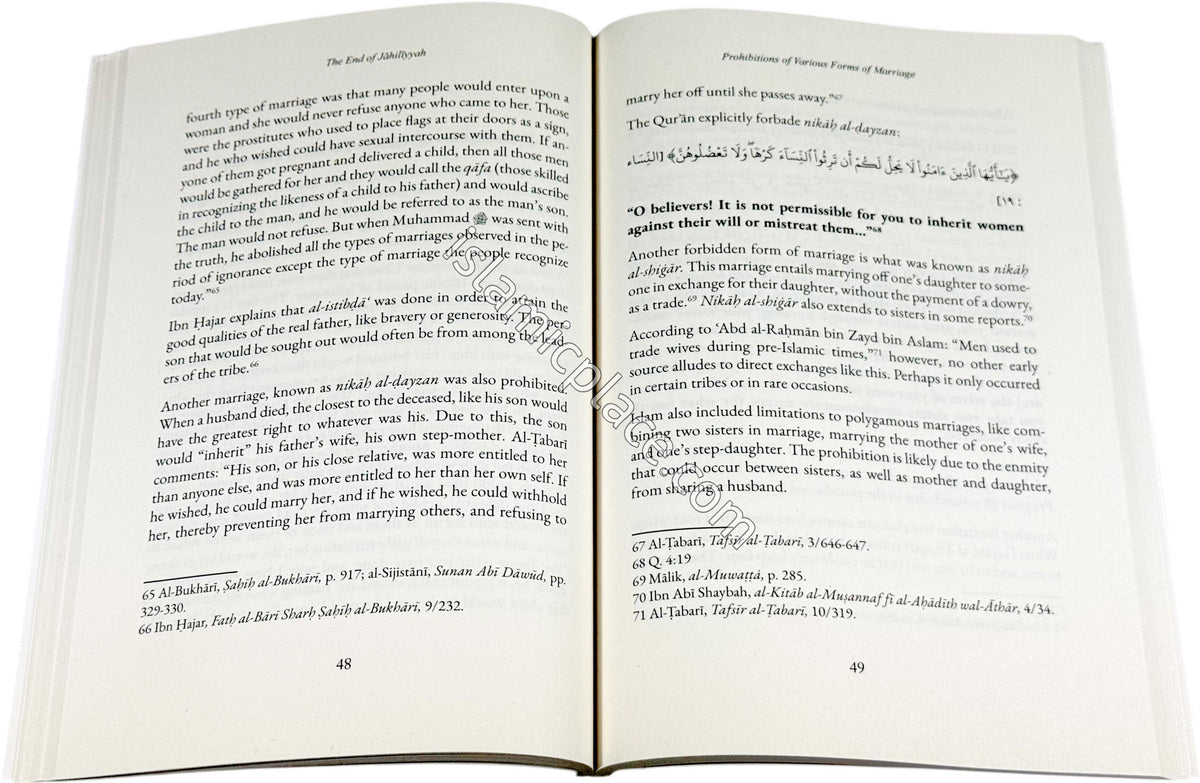 The End of Jāhilīyyah
fourth type of marriage was that many people would enter upon a
woman and she would never refuse anyone who came to her. Those
were the prostitutes who used to place flags at their doors as a sign,
and he who wished could have sexual intercourse with them. If an-
yone of them got pregnant and delivered a child, then all those men
would be gathered for her and they would call the qāfa (those skilled
in recognizing the likeness of a child to his father) and would ascribe
the child to the man, and he would be referred to as the man's son.
The man would not refuse. But when Muhammad ﷺ was sent with
the truth, he abolished all the types of marriages observed in the pe-
riod of ignorance except the type of marriage the people recognize
today."65
Ibn Ḥajar explains that al-istibḍā‘ was done in order to attain the
good qualities of the real father, like bravery or generosity. The per
son that would be sought out would often be from among the lead-
ers of the tribe.66
Another marriage, known as nikāḥ al-ḍayzan was also prohibited.
When a husband died, the closest to the deceased, like his son would
have the greatest right to whatever was his. Due to this, the son
would "inherit" his father's wife, his own step-mother. Al-Ṭabarī
comments: "His son, or his close relative, was more entitled to her
than anyone else, and was more entitled to her than her own self. If
he wished, he could marry her, and if he wished, he could withhold
her, thereby preventing her from marrying others, and refusing to
65 Al-Bukhārī, Ṣaḥīḥ al-Bukhārī, p. 917; al-Sijistānī, Sunan Abī Dāwūd, pp.
329-330.
66 Ibn Ḥajar, Fatḥ al-Bārī Sharḥ Ṣaḥīḥ al-Bukhārī, 9/232.
48
Prohibitions of Various Forms of Marriage
marry her off until she passes away."67
The Qur'ān explicitly forbade nikāḥ al-ḍayzan:
﴿يَـٰٓأَيُّهَا ٱلَّذِينَ ءَامَنُوا۟ لَا يَحِلُّ لَكُمْ أَن تَرِثُوا۟ ٱلنِّسَآءَ كَرْهًا ۖ وَلَا تَعْضُلُوهُنَّ﴾ [النِّسَاء
: ١٩]
"O believers! It is not permissible for you to inherit women
against their will or mistreat them..."68
Another forbidden form of marriage is what was known as nikāḥ
al-shiġār. This marriage entails marrying off one's daughter to some-
one in exchange for their daughter, without the payment of a dowry,
as a trade.69 Nikāḥ al-shiġār also extends to sisters in some reports.70
According to ‘Abd al-Raḥmān bin Zayd bin Aslam: "Men used to
trade wives during pre-Islamic times,"71 however, no other early
source alludes to direct exchanges like this. Perhaps it only occurred
in certain tribes or in rare occasions.
Islam also included limitations to polygamous marriages, like com-
bining two sisters in marriage, marrying the mother of one's wife,
and one's step-daughter. The prohibition is likely due to the enmity
that could occur between sisters, as well as mother and daughter,
from sharing a husband.
67 Al-Ṭabarī, Tafsīr al-Ṭabarī, 3/646-647.
68 Q. 4:19
69 Mālik, al-Muwaṭṭa, p. 285.
70 Ibn Abī Shaybah, al-Kitāb al-Muṣannaf fī al-Aḥādīth wal-Āthār, 4/34.
71 Al-Ṭabarī, Tafsīr al-Ṭabarī, 10/319.
49
islamicplace.com